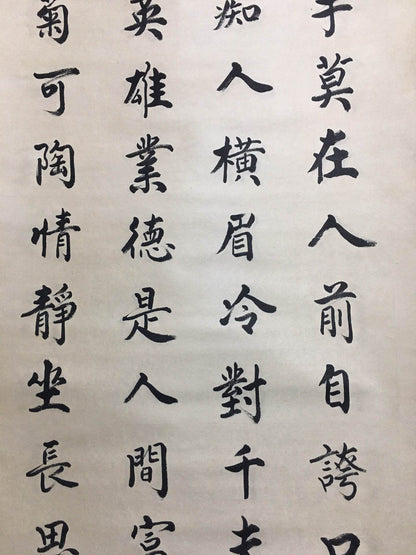 莫在人前自誇口
痴人橫眉冷對千夫
英雄業德是人間富
菊可陶情靜坐長思